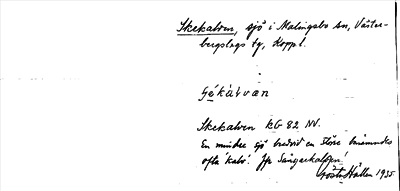 Skekalven, sjö i Malingsbo sn, Väster-
bergslags tg, Koppl.
Skekalven kG 82 NV.
En mindre sjö bredvid en större benämndes
ofta 'kalv'. Jfr
Gösta Hallen 1935